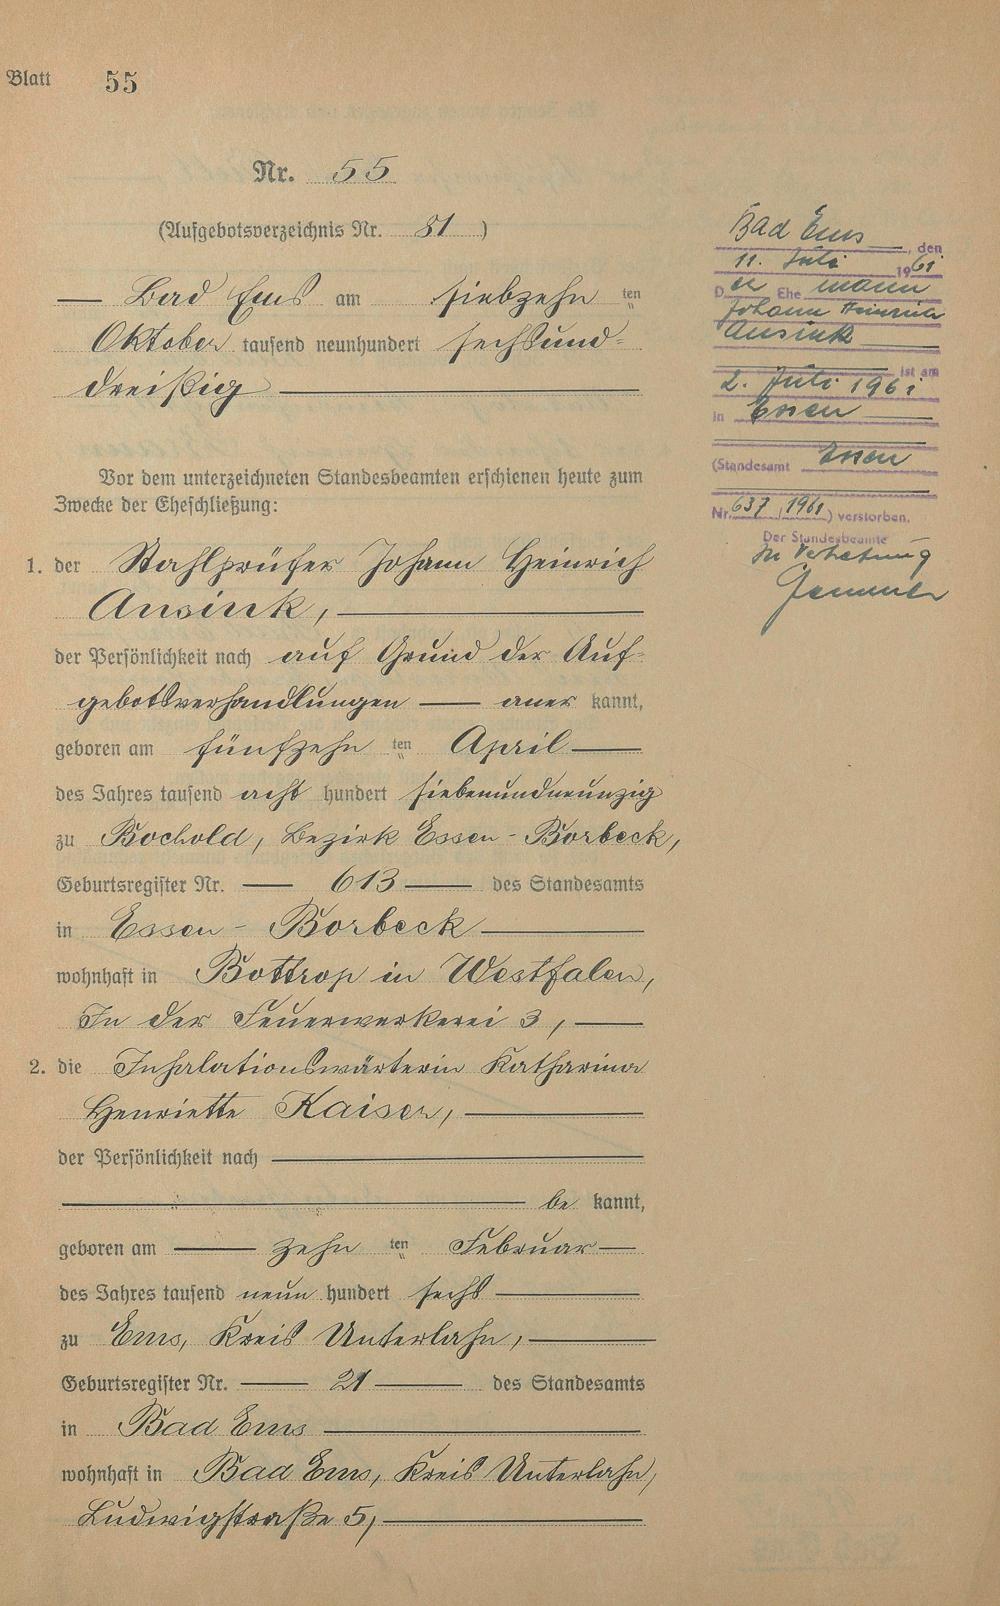 Blatt 55
Nr. 55
(Aufgebotsverzeichnis Nr. 81)
Bad Ems am siebzehn ten
Oktober tausend neunhundert sechsund-
dreißig
Vor dem unterzeichneten Standesbeamten erschienen heute zum
Zwecke der Eheschließung:
1. der Stahlprüfer Johann Heinrich
Ansink,
der Persönlichkeit nach auf Grund der Auf-
gebotsverhandlungen — aner kannt,
geboren am fünfzehn ten April
des Jahres tausend acht hundert siebenundneunzig
zu Bochold, Bezirk Essen-Borbeck,
Geburtsregister Nr. 613 des Standesamts
in Essen-Borbeck
wohnhaft in Bottrop in Westfalen,
In der Feuerwerkerei 3,
2. die Inhalationswärterin Katharina
Henriette Kaiser,
der Persönlichkeit nach
be kannt,
geboren am zehn ten Februar
des Jahres tausend neun hundert sechs
zu Ems, Kreis Unterlahn,
Geburtsregister Nr. 21 des Standesamts
in Bad Ems
wohnhaft in Bad Ems, Kreis Unterlahn,
Ludwigstraße 5,
Bad Ems, den
11. Juli 1961
Der Ehe mann
Johann Heinrich
Ansink
ist am
2. Juli 1961
in Essen
(Standesamt Essen
Nr. 637, 1961) verstorben.
Der Standesbeamte
In Vertretung